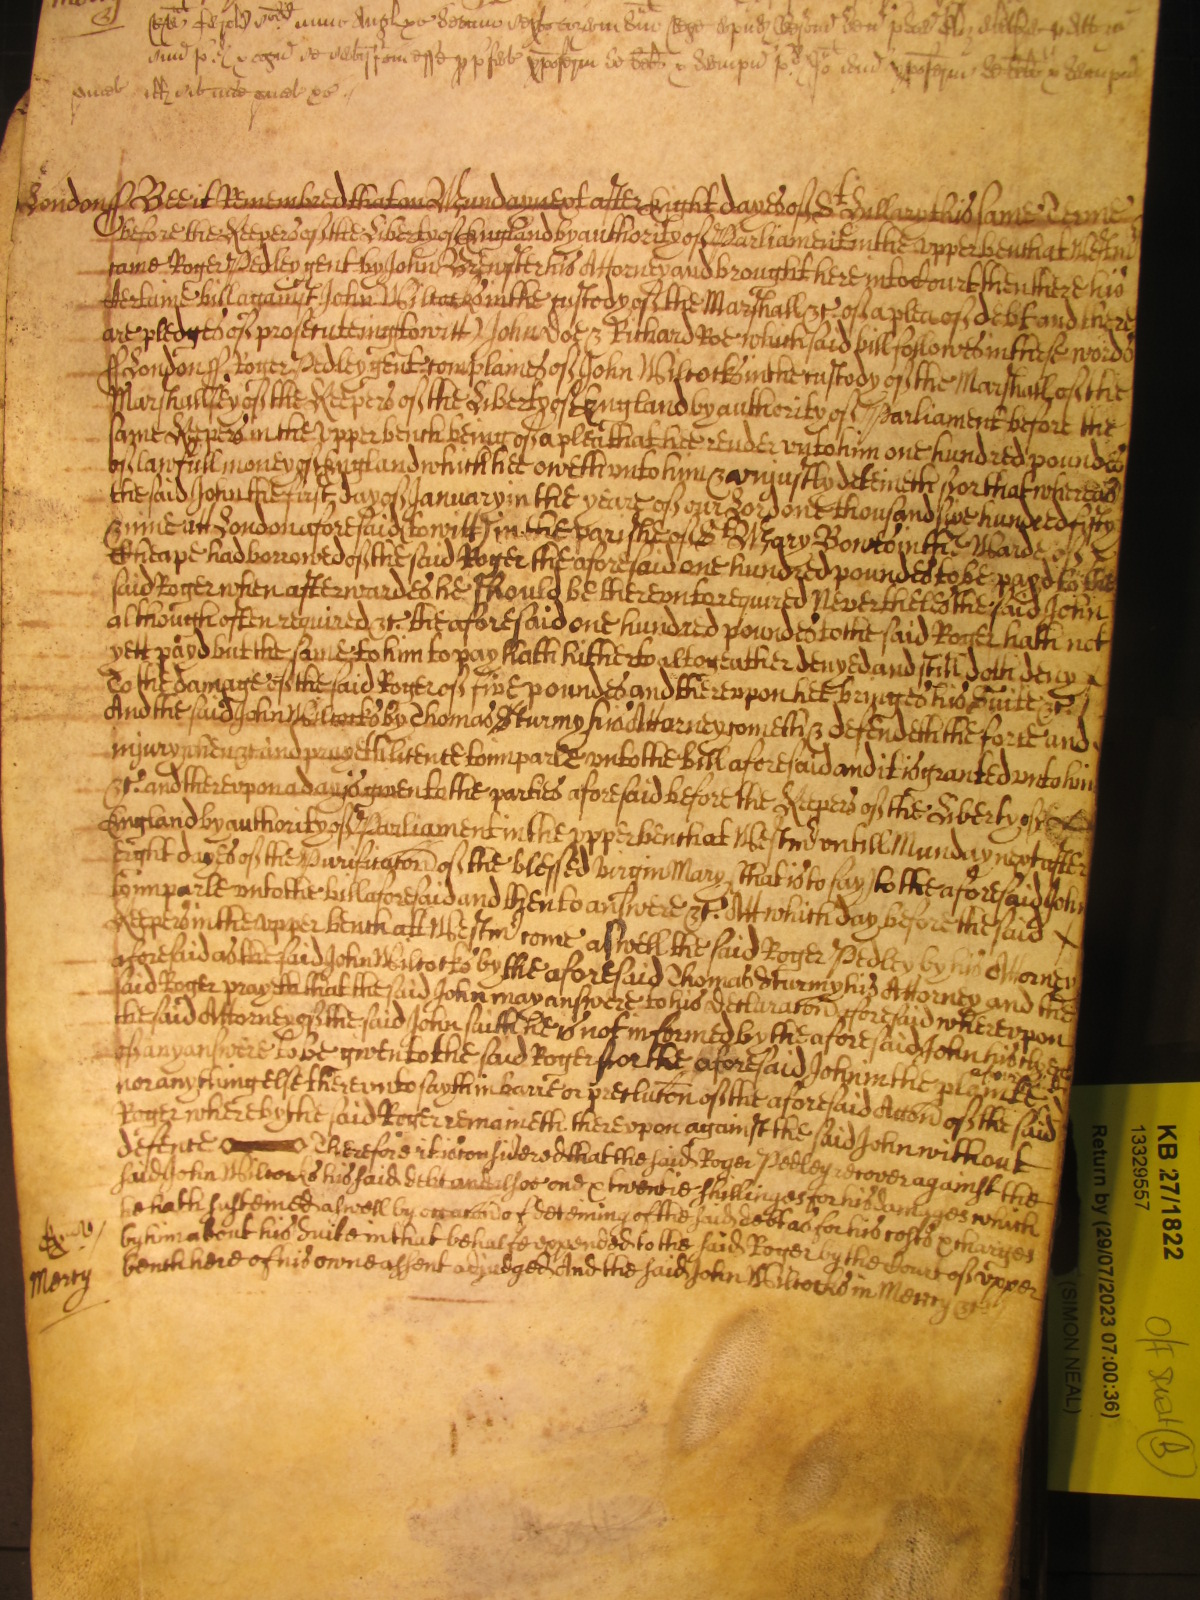 Mercy
London ss Bee it Remembred that on Munday next after Eight dayes of St Hillary this same Terme
before the Keepers of the Liberty of England by authority of Parliament in the upper bench at Westmr
came Roger Pedley gent by John Brewster his Attorney and brought here into Court then there his
certaine bill against John Wilcocks in the custody of the Marshall &c. of a plea of debt and there
are pledges of prosecuteing (to witt) John Doe & Richard Roe which said bill followes in these words
ss London ss Roger Pedley gent complaines of John Wilcocks in the custody of the Marshall of the
Marshallsey of the Keepers of the Liberty of England by authority of Parliament before the
same Keepers in the upper bench being of a plea that hee render unto him one hundred poundes
of lawfull money of England which hee oweth unto him & unjustly deteineth for that whereas
the said John the first day of January in the yeare of our Lord one thousand sixe hundred fifty
& nine att London aforesaid (to witt) in the parishe of St Mary Bowe in the Warde of
Cheape had borrowed of the said Roger the aforesaid one hundred poundes to be payd to the
said Roger when afterwardes he should be thereunto required Neverthelesse the said John
although often required &c. the aforesaid one hundred poundes to the said Roger hath not
yett payd but the same to him to pay hath hitherto altogeather denyed and still doth deny
To the damage of the said Roger of five poundes and thereupon hee bringes his Suite &c.
And the said John Wilcocks by Thomas Sturmy his Attorney cometh & defendeth the force and
injury when &c. and prayeth licence to imparle unto the bill aforesaid and it is granted unto him
&c. and thereupon a day is given to the parties aforesaid before the Keepers of the Liberty of
England by authority of Parliament in the upper bench at Westmr untill Munday next after
Eight dayes of the Purificacon of the blessed virgin Mary (that is to say) to the aforesaid John
to imparle unto the bill aforesaid and then to answere &c. Att which day before the said
Keepers in the upper bench att Westmr come aswell the said Roger Pedley by his Attorney
aforesaid as the said John Wilcocks by the aforesaid Thomas Sturmy his Attorney and the
said Roger prayeth that the said John may answere to his declaracon aforesaid whereupon
the said Attorney of the said John saith he is not informed by the aforesaid John his
of any answere to be given to the said Roger for the aforesaid John in the plainte aforesaid
nor any thing else thereunto sayth in barre or preclucon of the aforesaid Accon of the said
Roger whereby the said Roger remaineth thereupon against the said John without
defence Therefore it is considered that the said Roger Pedley recover against the
said John Wilcocks his said debt and alsoe one & twentie shillinges for his damages which
he hath susteined aswell by occacon of deteining of the said debt as for his costs & charges
by him about his Suite in that behalfe expended to the said Roger by the Court of upper
bench here of his owne assent adjudged And the said John Wilcocks in Mercy &c.
Mercy
KB 27/1822
13329557
Return by (29/07/2023 07:00:36)
(SIMON NEAL)